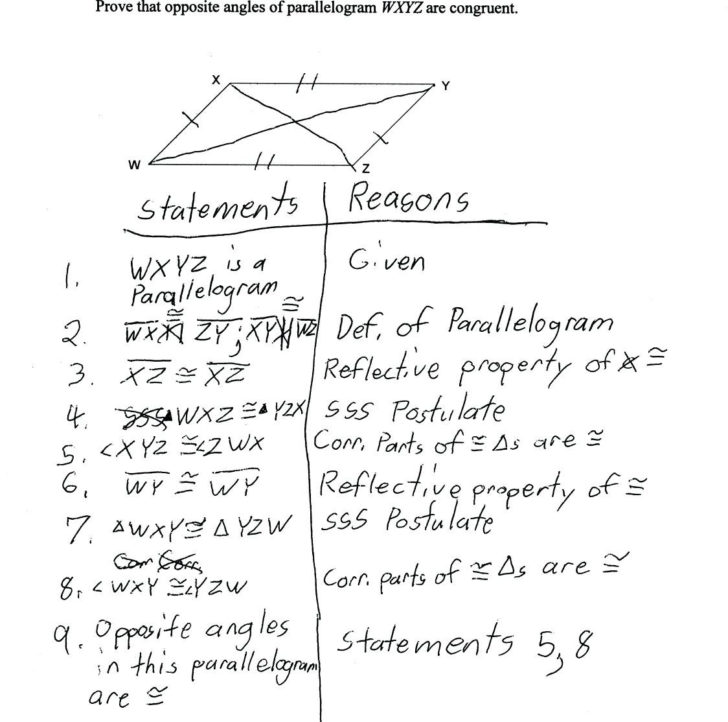 Prove that opposite angles of parallelogram WXYZ are congruent.
X
Y
W
Z
Statements Reasons
1. WXYZ is a Parallelogram Given
2. WX ≅ ZY; XY ≅ WZ Def. of Parallelogram
3. XZ ≅ XZ Reflective property of ≅
4. ▵WXZ ≅ ▵YZX SSS Postulate
5. <XYZ ≅ <ZWX Corr. Parts of ≅ ∆s are ≅
6. WY ≅ WY Reflective property of ≅
7. ∆WXY ≅ ∆YZW SSS Postulate
8. <WXY ≅ <YZW Corr. parts of ≅ ∆s are ≅
9. Opposite angles
in this parallelogram
are ≅
Statements 5, 8